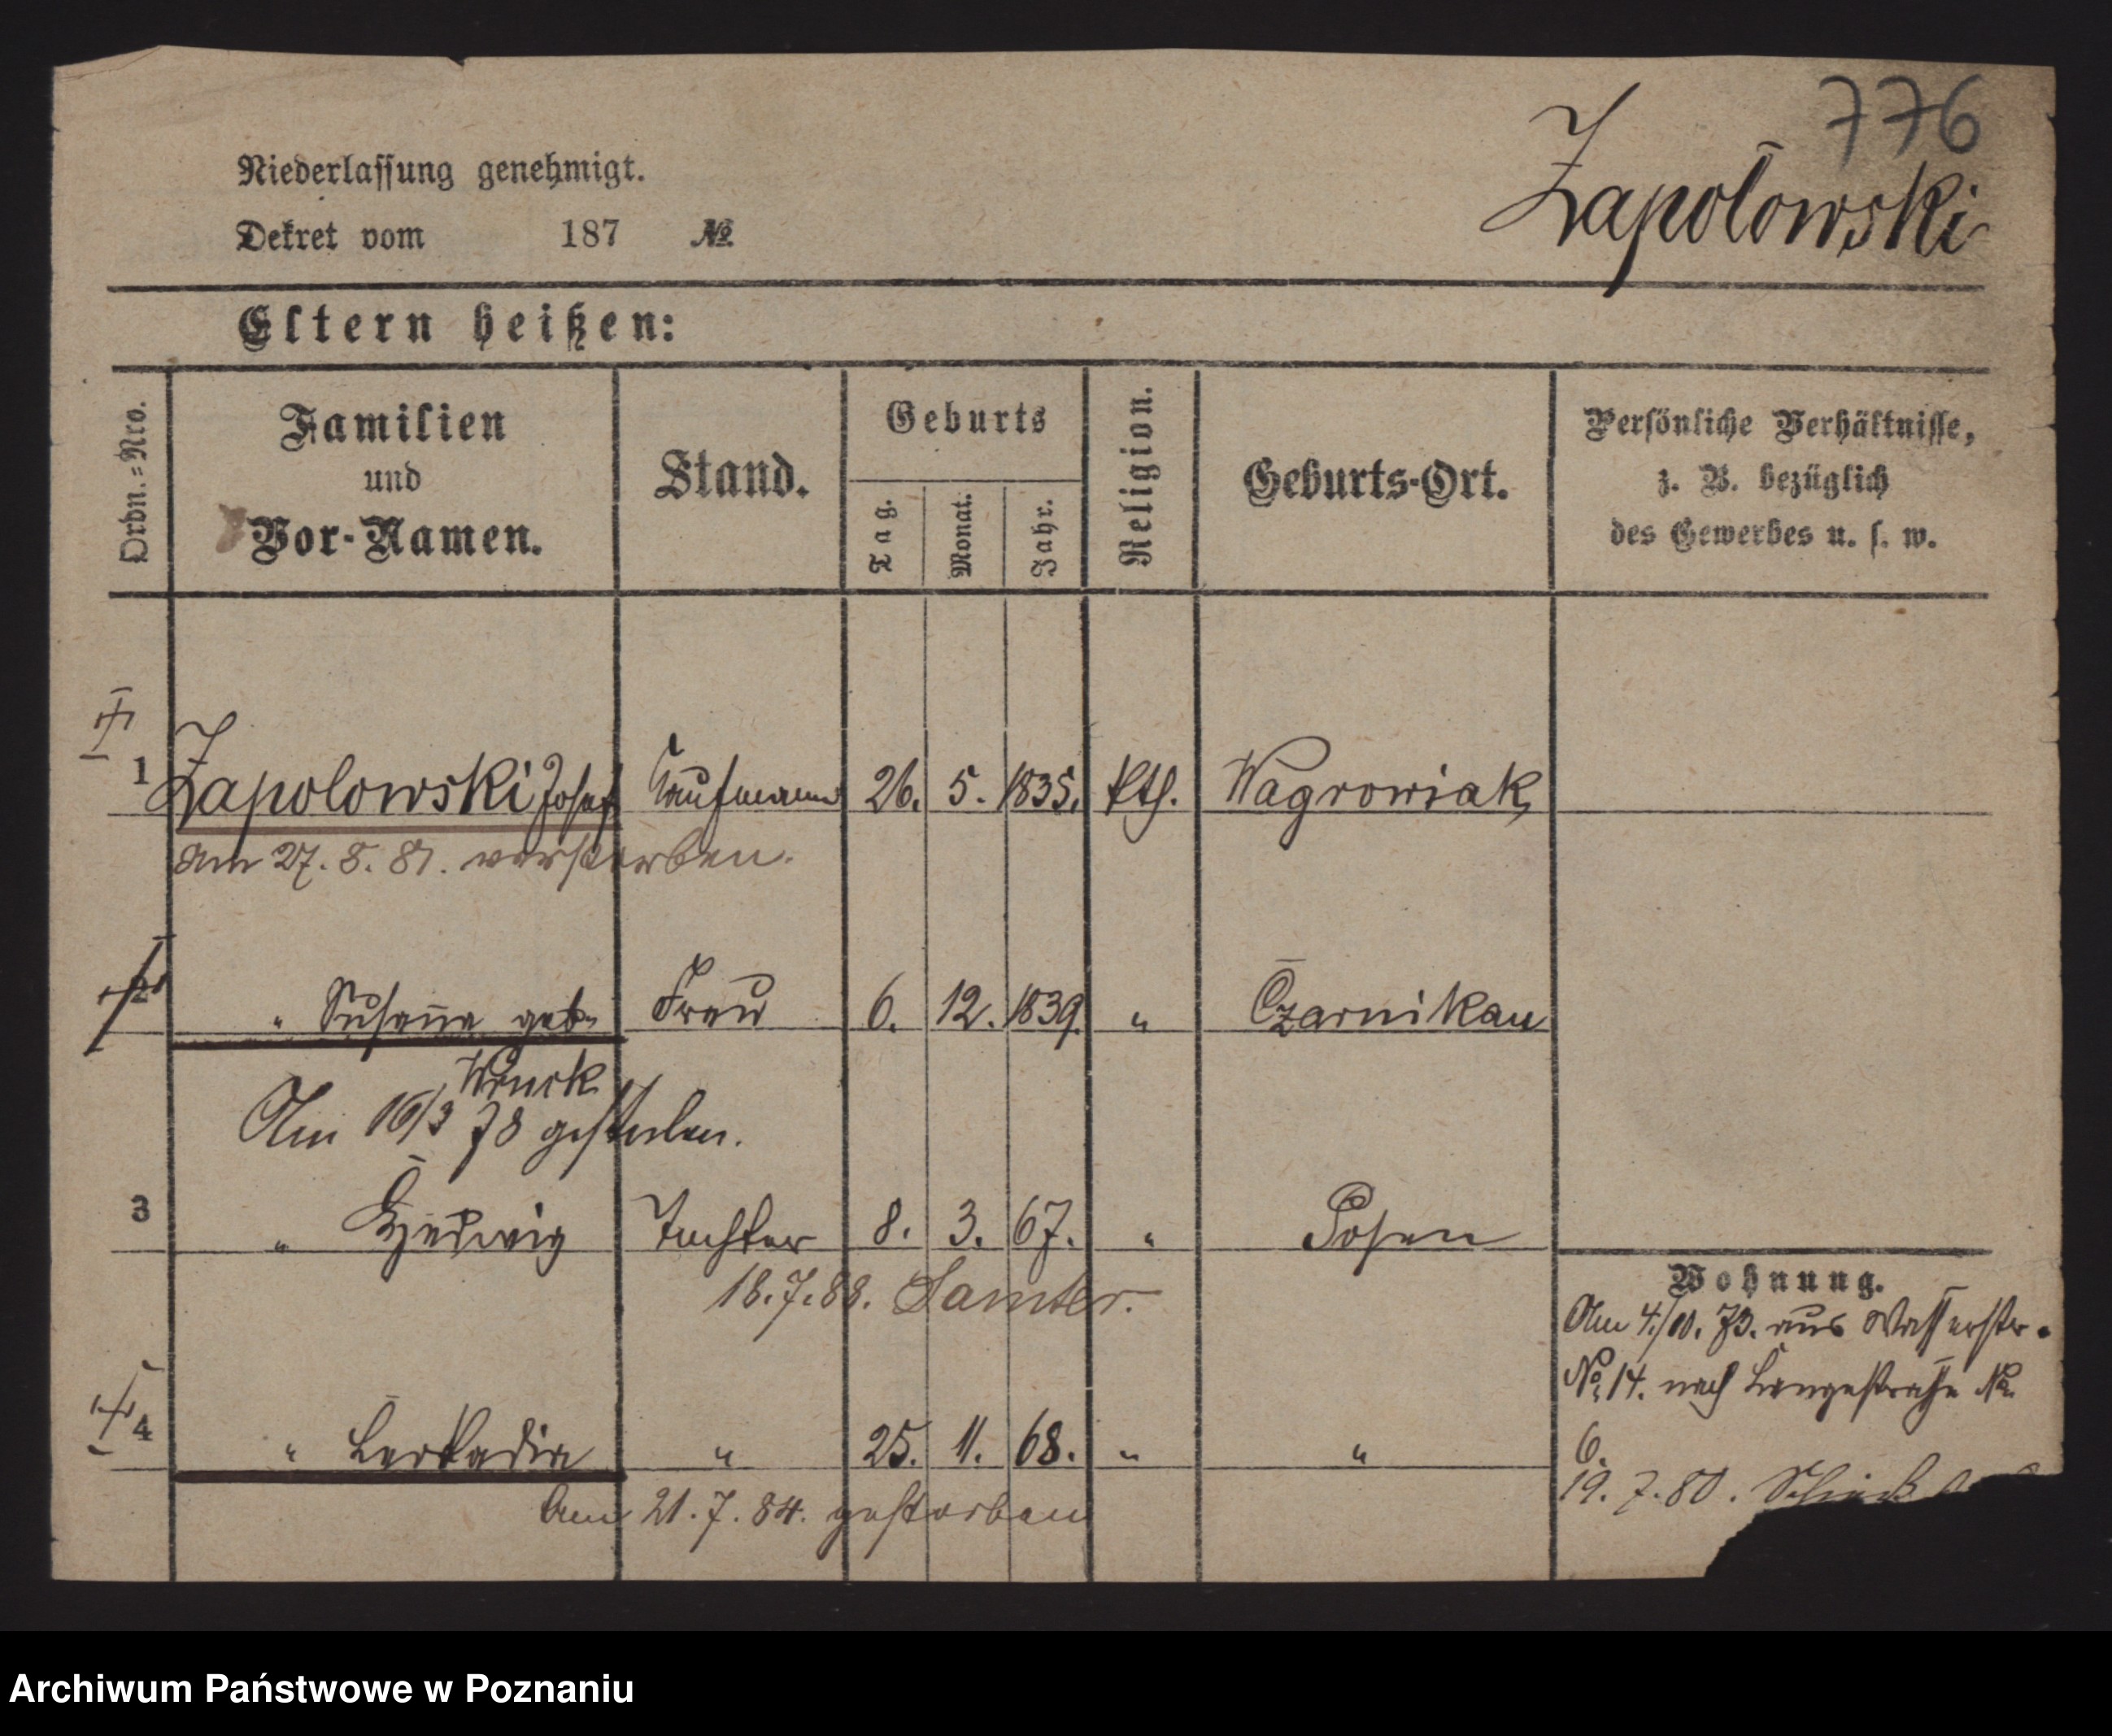 776
Zapolowski
Niederlassung genehmigt.
Dekret vom 187 №
Eltern heißen:
Ordn.=Nro.
Familien
und
Vor-Namen.
Stand.
Geburts
Tag.
Monat.
Jahr.
Religion.
Geburts-Ort.
Persönliche Verhältnisse,
z. B. bezüglich
des Gewerbes u. s. w.
1 Zapolowski Josef Kaufmann 26. 5. 1835. kth. Wagrowiak
am 27. 8. 81. verstorben.
2 " Susanna geb. Frau 6. 12. 1839. " Czarnikau
Wruck
Am 16/3 78 gestorben.
3 " Hedwig Tochter 8. 3. 67. " Posen
18.7.88. Samter.
Wohnung.
Am 4./10. 73. aus Wasserstr.
No. 14. nach Langestraße No.
6.
4 " Leokadia " 25. 11. 68. " "
19. 7. 80.
Am 21. 7. 84. gestorben
Archiwum Państwowe w Poznaniu